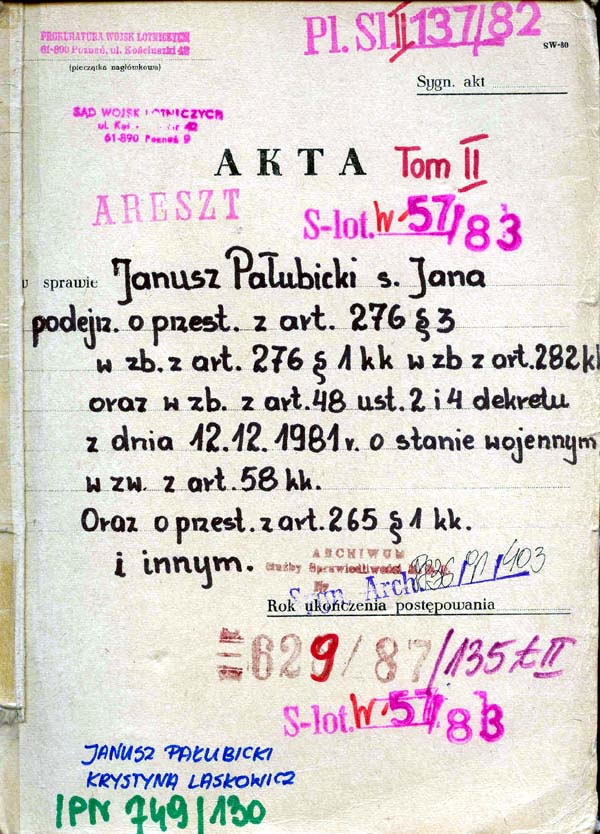 PROKURATURA WOJSK LOTNICZYCH
61-890 Poznań, ul. Kościuszki 42
(pieczątka nagłówkowa)
Pl. Sl. II 137/82
SW-30
Sygn. akt
SĄD WOJSK LOTNICZYCH
ul. 42
61-890 Poznań 9
AKTA Tom II
ARESZT
S-lot. W 57/83
w sprawie Janusz Pałubicki s. Jana
podejrz. o przest. z art. 276 § 3
w zb. z art. 276 § 1 kk w zb z art. 282 kk
oraz w zb. z art. 48 ust. 2 i 4 dekretu
z dnia 12.12.1981 r. o stanie wojennym
w zw. z art. 58 kk.
Oraz o przest. z art. 265 § 1 kk.
i innym.
ARCHIWUM
Służby Sprawiedliwości
Sygn. Arch. /91/403
Rok ukończenia postępowania
629/87/135 t. II
S-lot. W 57/83
JANUSZ PAŁUBICKI
KRYSTYNA LASKOWICZ
IPN 749/130